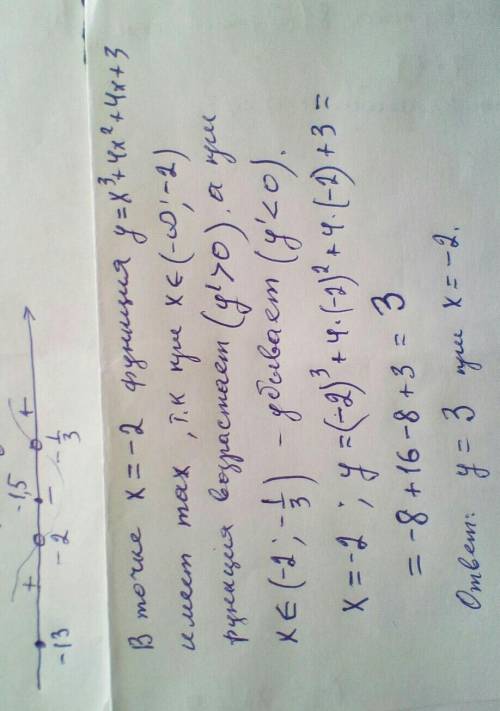 + -1,5 +
-13 -2 - -1/3
В точке x = -2 функция y = x³+4x²+4x+3
имеет max, т.к при x∈(-∞; -2)
функция возрастает (y'>0), а при
x∈(-2; -1/3) - убывает (y'<0).
x = -2; y = (-2)³+4·(-2)²+4·(-2)+3 =
= -8+16-8+3 = 3
Ответ: y = 3 при x = -2.